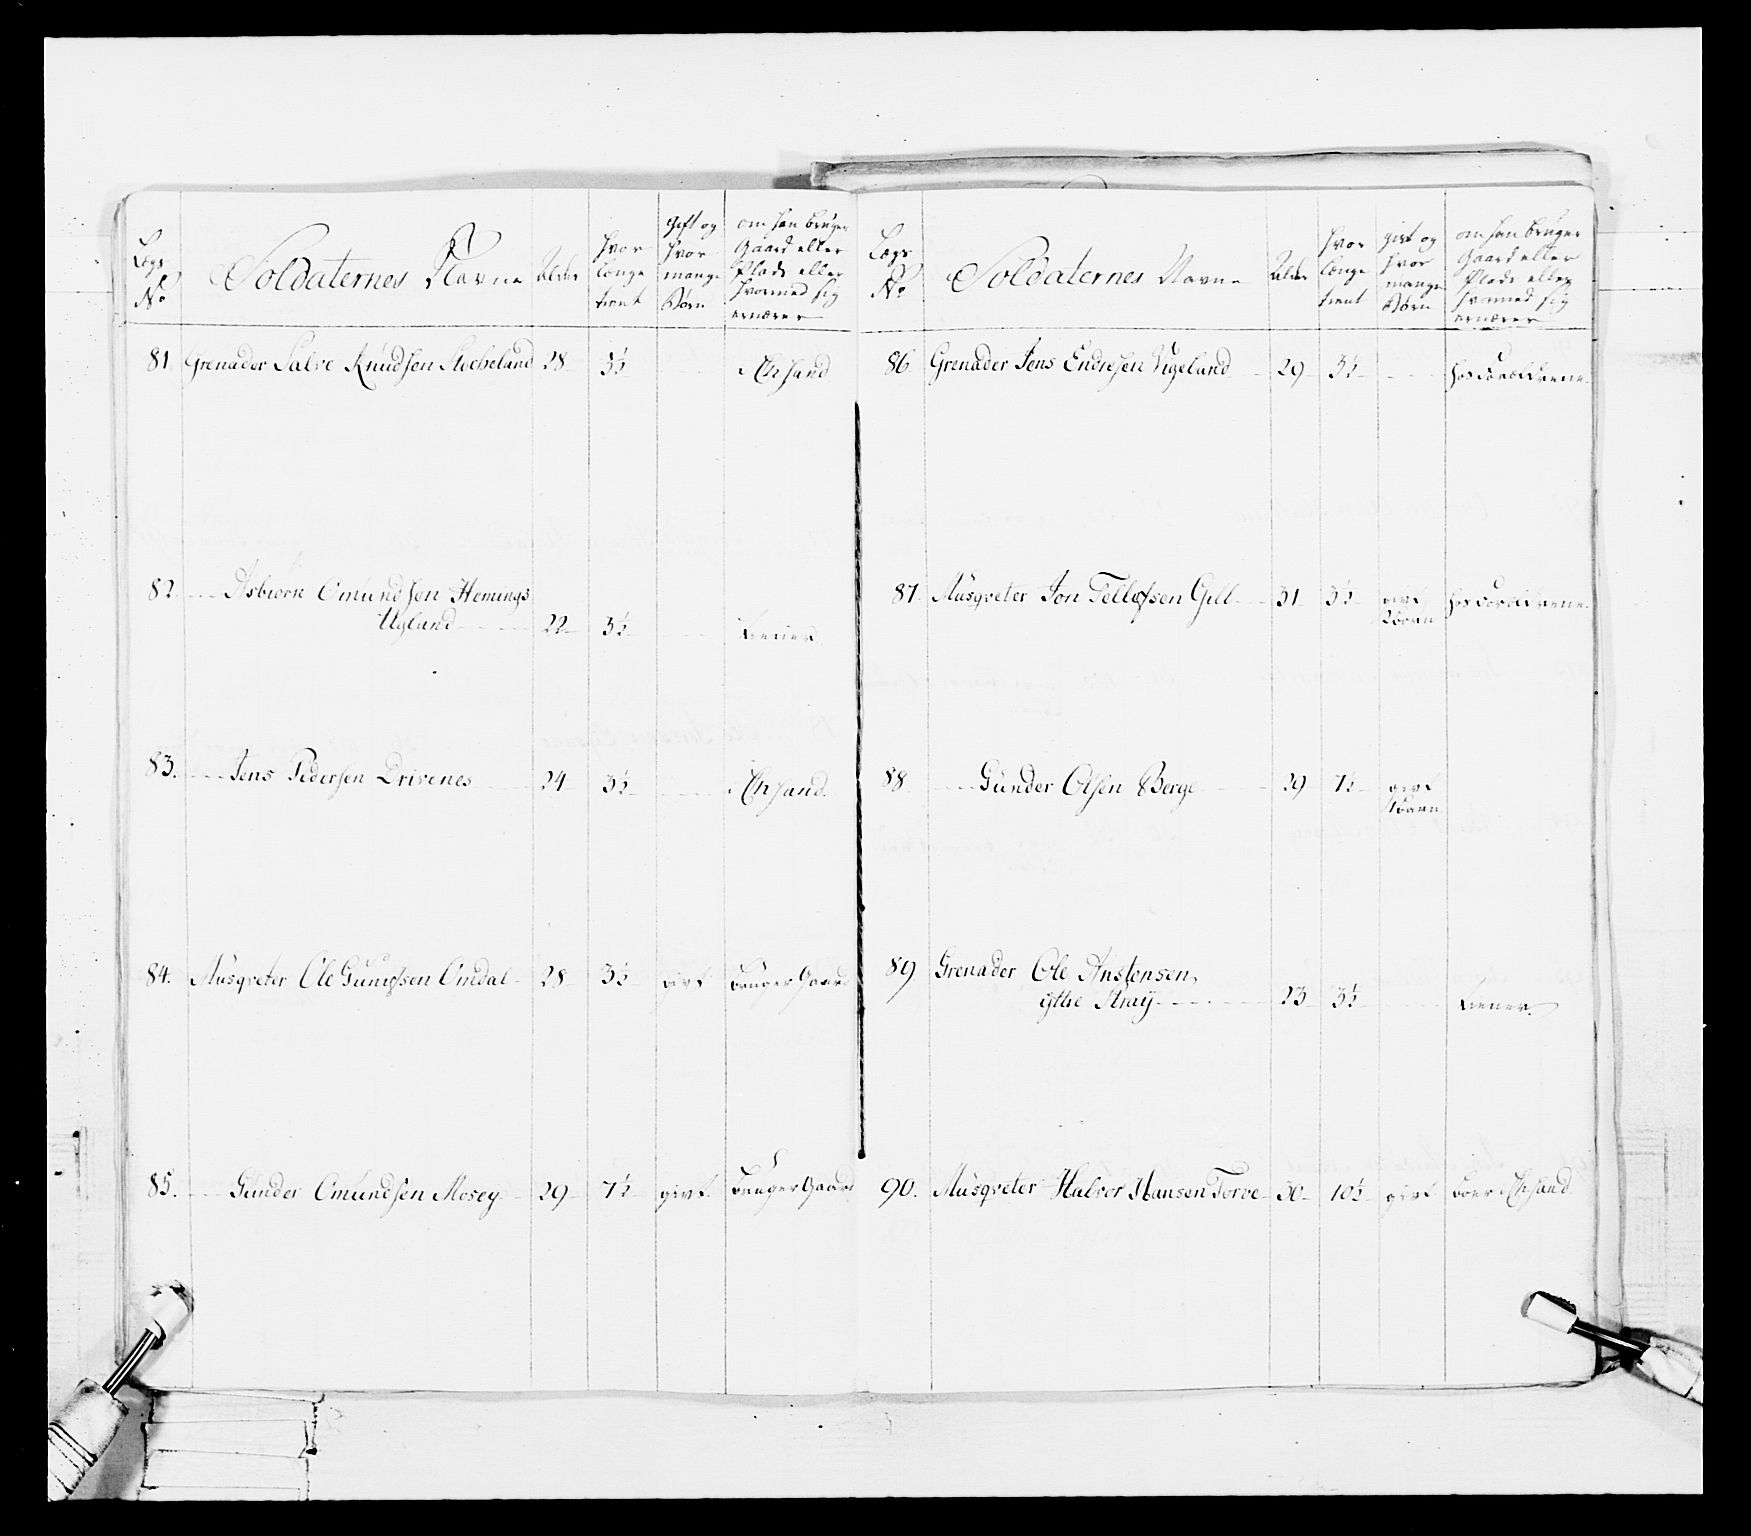 Lægs No
Soldaternes Navne
Alder
hvor længe tient
gift og hvor mange Børn
om han bruger Gaard eller Plads eller hvormed sig ernærer
81. Grenader Salve Knudsen Stocheland 28 3½ Chsand
82. Asbiørn Omundsen Hemings
Ugland 22 3½ tiener
83. Jens Pedersen Drivenes 24 3½ Chsand
84. Musqveter Ole Gunufsen Omdal 28 3½ givt bruger Gaard
85. Gunder Omundsen Mosey 29 7½ givt bruger Gaard
Lægs No
Soldaternes Navne
Alder
hvor længe tient
givt og hvor mange Børn
om han bruger Gaard eller Plads eller hvormed sig ernærer
86 Grenader Jens Endresen Vigeland 29 3½ hos Forældrene
87. Musqveter Jon Tellefsen Gill 31 3½ givt 2 børn hos Forældrene
88 Gunder Olsen Berge 29 7½ givt børn
89 Grenader Ole Anstensen
ytre Straÿ 23 3½ tiener
90. Musqveter Halvor Hansen Torve 30 10½ givt boer Chsand